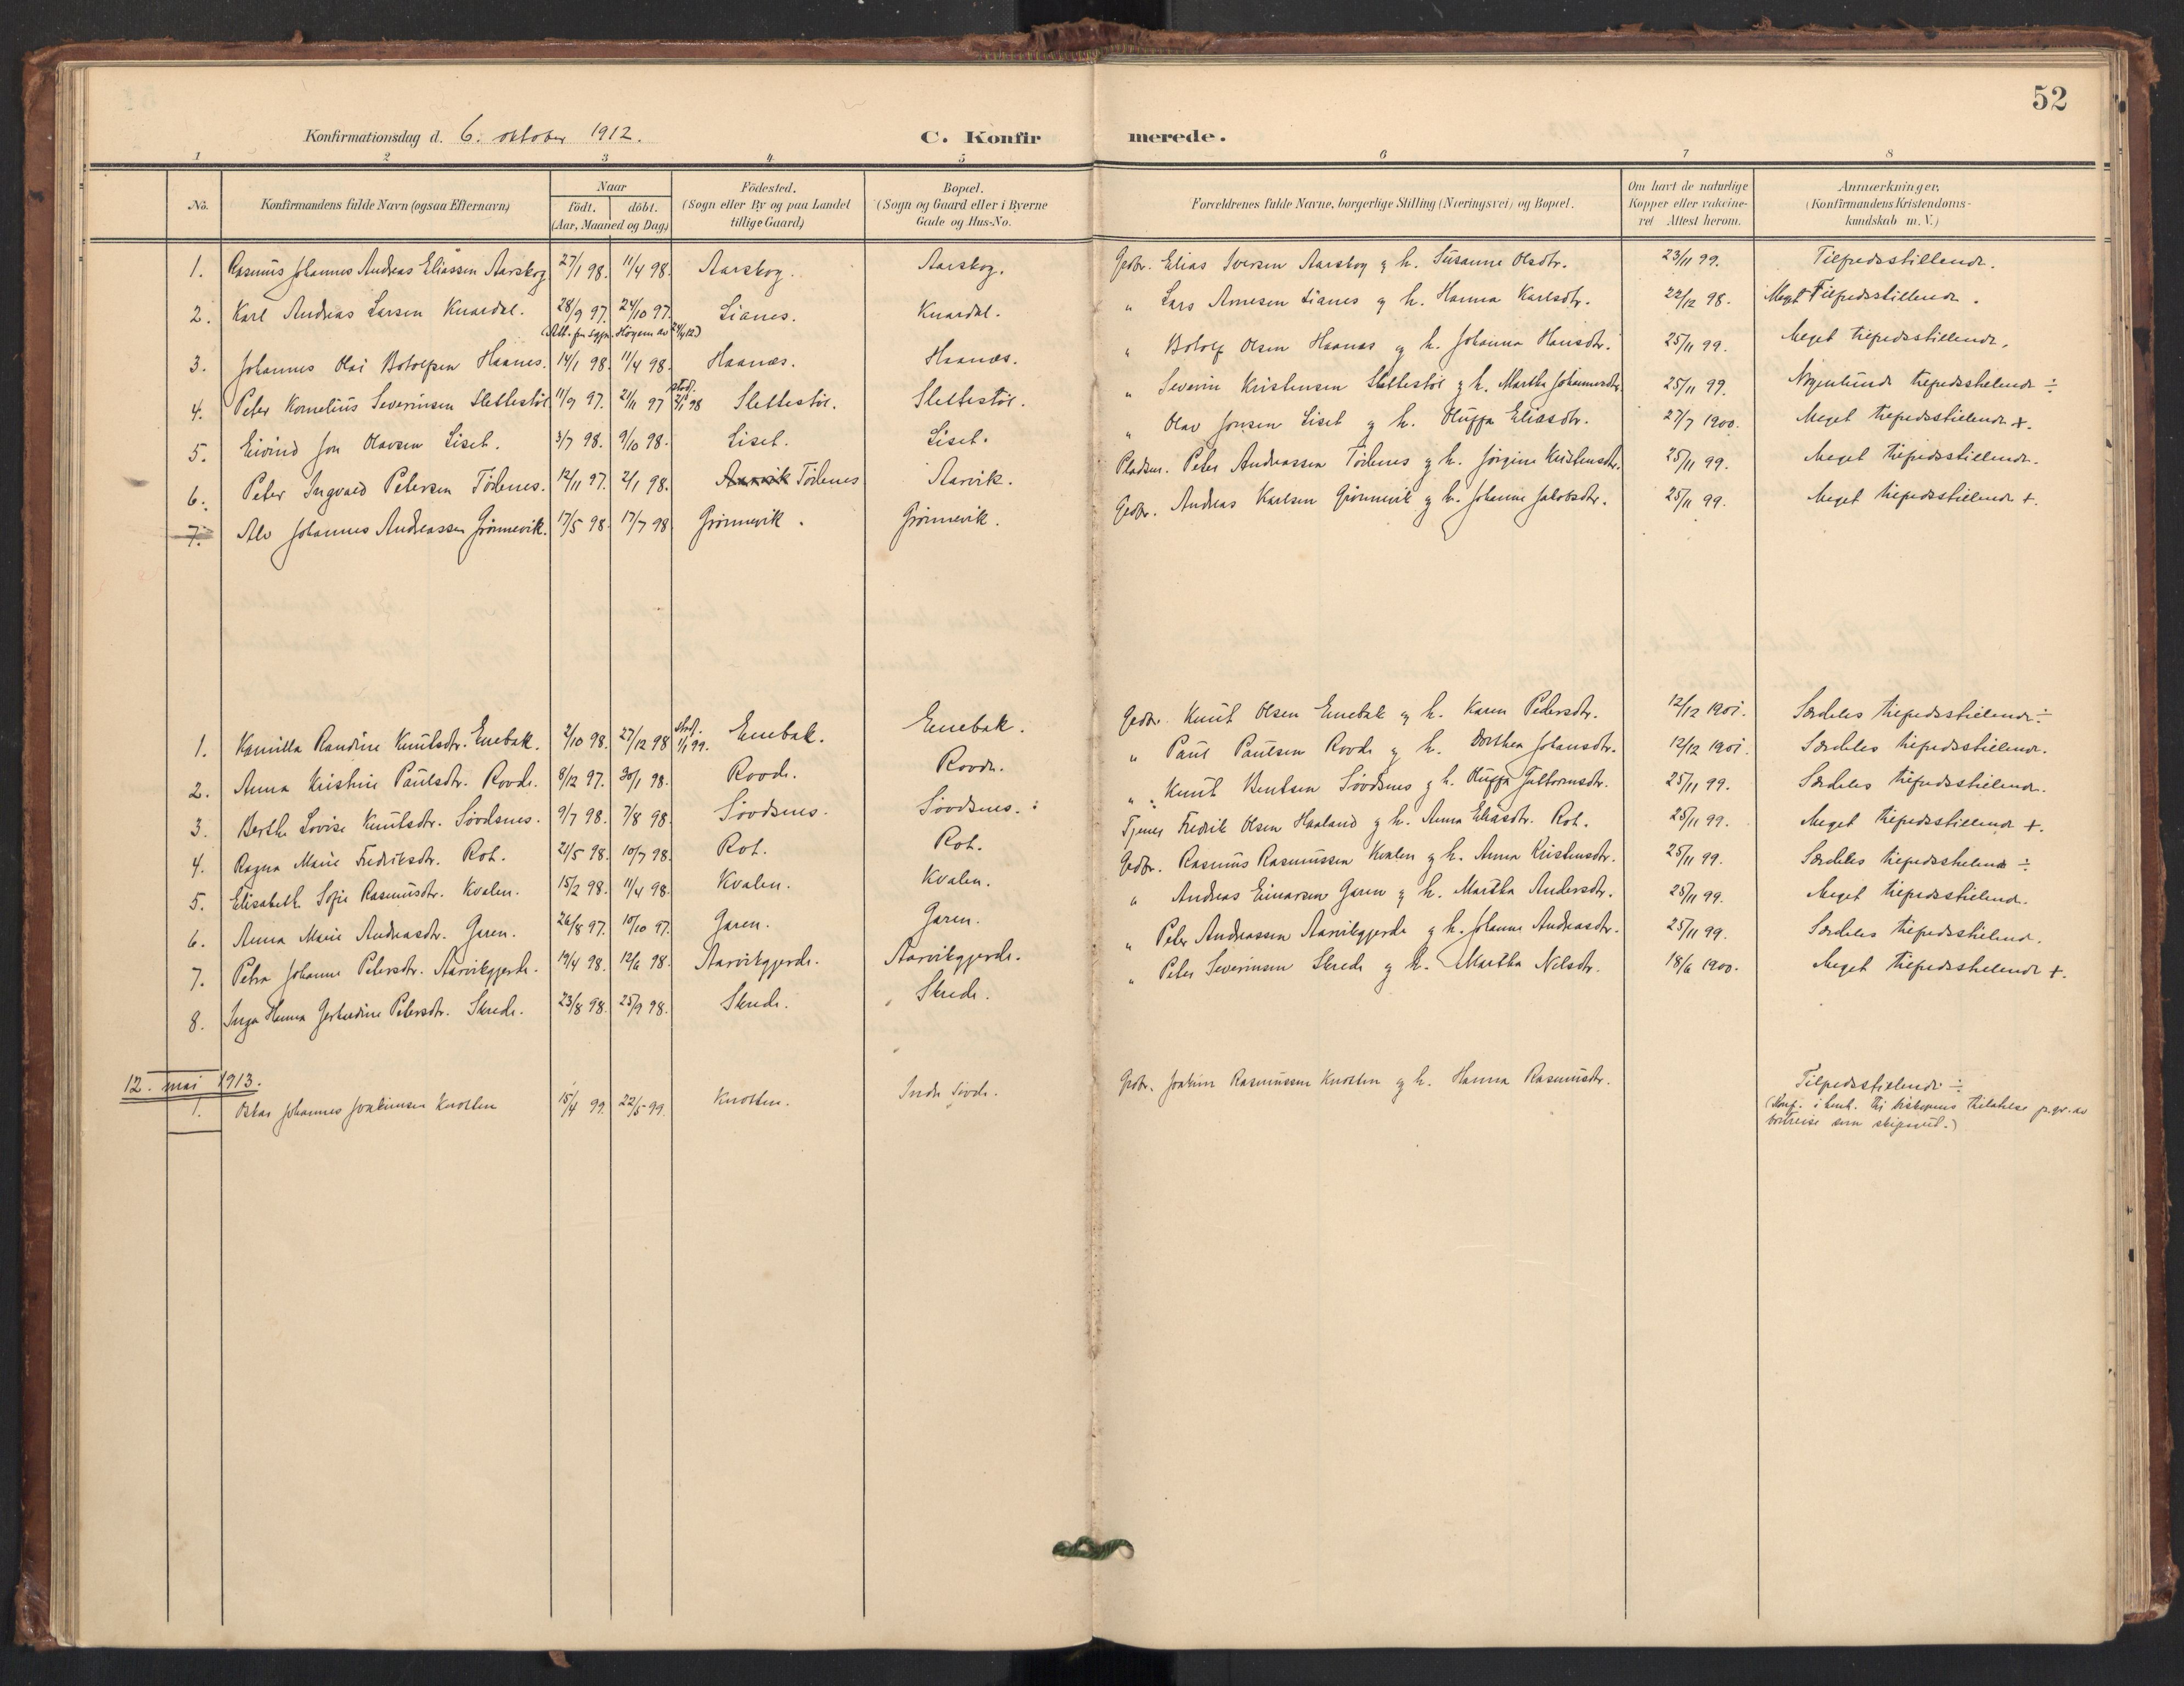 52
Konfirmationsdag d. 6. oktober 1912. C. Konfirmerede.
1 2 3 4 5 6 7 8
No. Konfirmandens fulde Navn (ogsaa Efternavn) Naar födt. döbt. (Aar, Maaned og Dag) Födested. (Sogn eller By og paa Landet tillige Gaard) Bopæl. (Sogn og Gaard eller i Byerne Gade og Hus-No. Forældrenes fulde Navne, borgerlige Stilling (Næringsvei) og Bopæl. Om havt de naturlige Kopper eller vakcineret Attest herom. Anmærkninger. (Konfirmandens Kristendomskundskab m. V.)
1. Rasmus Johannes Andreas Eliassen Aarskog 27/1 98. 11/4 98. Aarskog. Aarskog. Gedbr. Elias Iversen Aarskog og h. Susanne Olsdtr. 23/11 99. Tilfredsstillende.
2. Karl Andreas Larsen Knardal. 28/9 97. 24/10 97. Lianes. Knardal. " Lars Arnesen Lianes og h. Hanna Karlsdtr. 22/12 98. Meget Tilfredsstillende.
3. Johannes Olai Botolfsen Haanes. 14/1 98. 11/4 98. Haanæs. Haanæs. " Botolf Olsen Haanæs og h. Johanna Hansdtr. 25/11 99. Meget tilfredsstillende.
4. Peter Kornelius Severinsen Slettestöl 11/9 97. 21/11 97 stadf. 2/1 98 Slettestöl. Slettestöl. " Severin Kristensen Slettestöl og h. Martha Johannesdtr. 25/11 99. Nogenlunde tilfredsstillende ÷
5. Eivind Jon Olavsen Liset. 3/7 98. 9/10 98. Liset. Liset. " Olav Jonsen Liset og h. Oluffa Eliasdtr. 27/7 1900. Meget tilfredsstillende +.
6. Peter Ingvald Petersen Tödenes. 12/11 97. 2/1 98. Aarvik Tödenes Aarvik. Pladsm. Peter Andreassen Tödenes og h. Jörgine Kristensdtr. 25/11 99. Meget tilfredsstillende.
7. Alv Johannes Andreassen Grönnevik. 17/5 98. 17/7 98 Grönnevik. Grönnevik. Gedbr. Andreas Karlsen Grönnevik og h. Johanne Jakobsdtr. 25/11 99. Meget tilfredsstillende +.
1. Kamilla Randine Knutsdtr. Enebak. 2/10 98. 27/12 98 stadf. 1/1 99. Enebak. Enebak. Gedbr. Knut Olsen Enebak og h. Karen Pedersdtr. 12/12 1901. Særdeles tilfredsstillende ÷
2. Anna Kristine Paulsdtr. Rovde. 8/12 97. 30/1 98. Rovde. Rovde. " Paul Paulsen Rovde og h. Dorthea Johansdtr. 12/12 1901. Særdeles tilfredsstillende.
3. Berthe Lovise Knutsdtr. Sövdsnes. 9/7 98. 7/8 98. Sövdsnes. Sövdsnes. " Knut Bentsen Sövdsnes og h. Oluffa Guttormsdtr. 25/11 99. Særdeles tilfredsstillende.
4. Ragna Marie Fredriksdtr. Rot. 21/5 98. 10/7 98. Rot. Rot. Tjener Fredrik Olsen Haaland og h. Anna Eliasdtr. Rot. 25/11 99. Meget tilfredsstillende +.
5. Elisabeth Sofie Rasmusdtr. Kvalen. 15/2 98. 11/4 98. Kvalen. Kvalen. Gedbr. Rasmus Rasmussen Kvalen og h. Anna Kristensdtr. 25/11 99. Særdeles tilfredsstillende ÷
6. Anna Marie Andreasdtr. Garen. 26/8 97. 10/10 97. Garen. Garen. " Andreas Einarsen Garen og h. Martha Andersdtr. 25/11 99. Meget tilfredsstillende.
7. Petra Johanne Petersdtr. Aarvikgjerde. 19/4 98. 12/6 98. Aarvikgjerde. Aarvikgjerde. " Peter Andreassen Aarvikgjerde og h. Johanne Andreasdtr. 25/11 99. Særdeles tilfredsstillende.
8. Inga Hanna Gerhardine Petersdtr. Skrede. 23/8 98. 25/9 98. Skrede. Skrede. " Peter Severinsen Skrede og h. Martha Nilsdtr. 18/6 1900. Meget tilfredsstillende +.
12. mai 1913.
1. Oskar Johannes Joakimsen Knotten 15/4 99. 22/5 99. Knotten. Indre Sövde. Gedbr. Joakim Rasmussen Knotten og h. Hanna Rasmusdtr. Tilfredsstillende ÷
(Konf. i henh. til biskopens tilatelse p. gr. av
bortreise som skipsgut.)